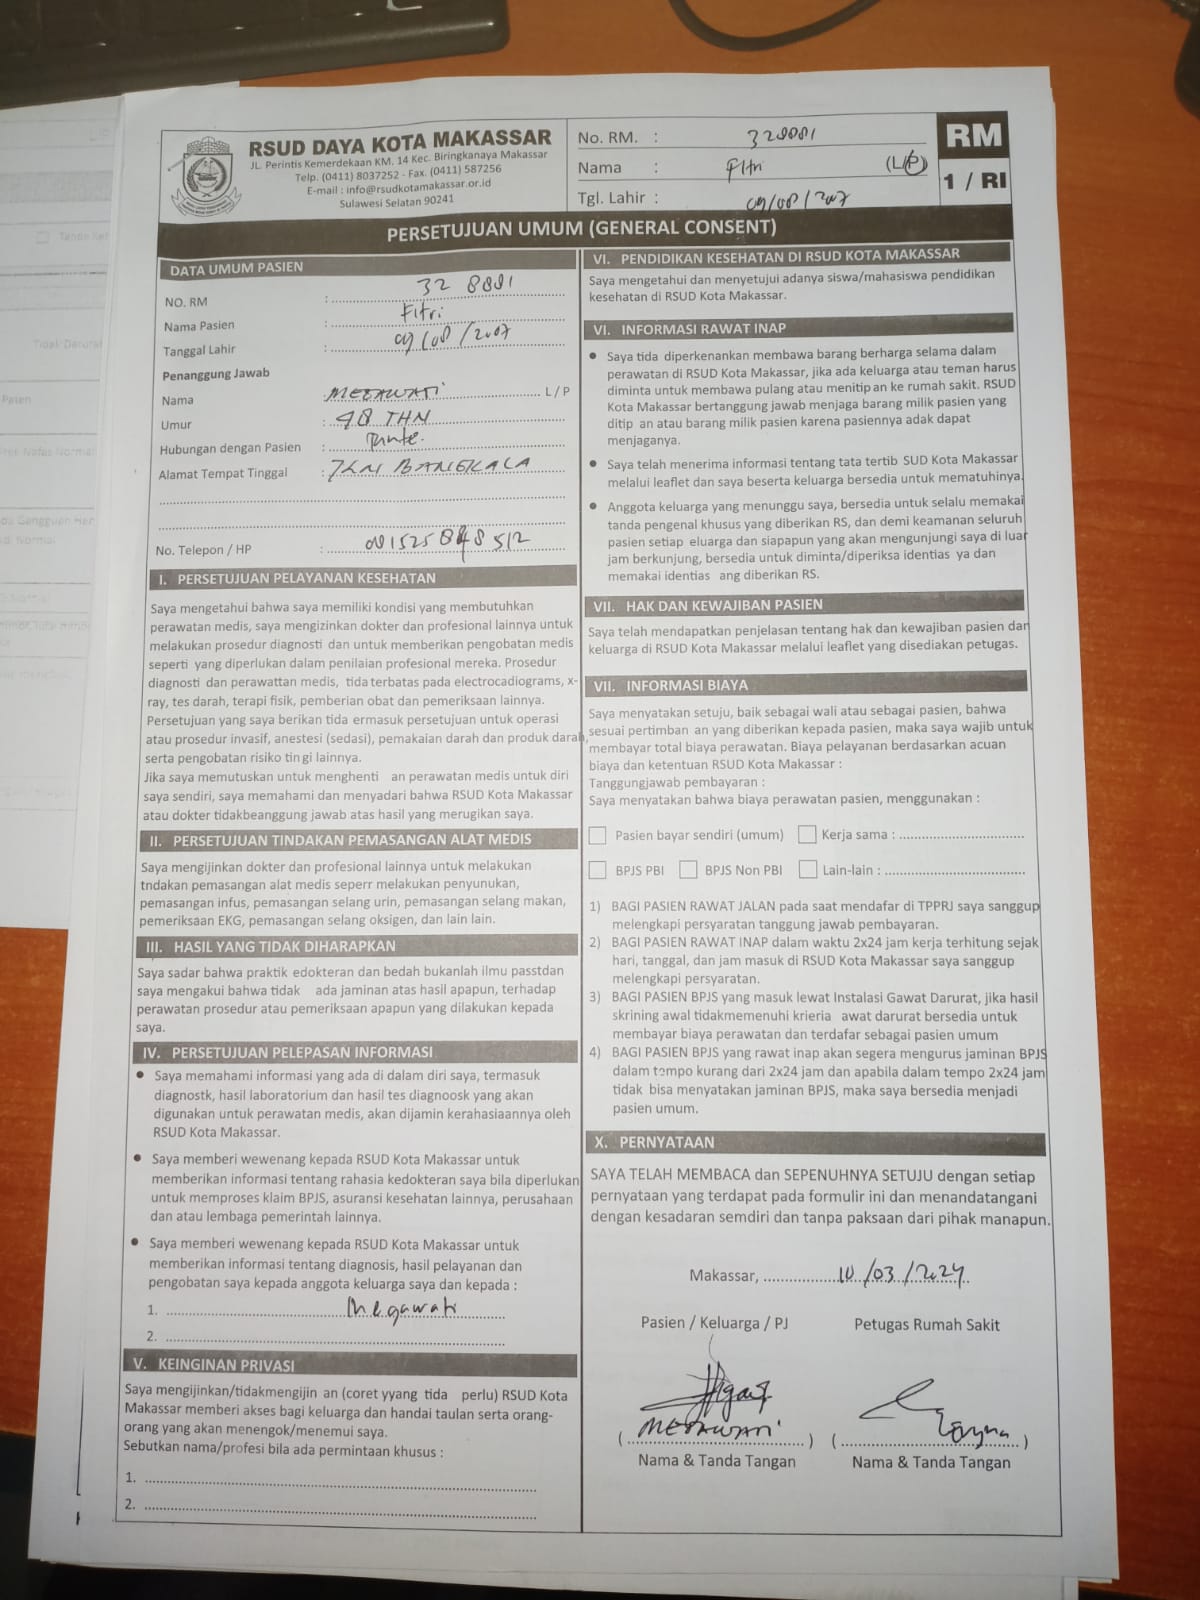 RSUD DAYA KOTA MAKASSAR
JL. Perintis Kemerdekaan KM. 14 Kec. Biringkanaya Makassar
Telp. (0411) 8037252 - Fax. (0411) 587256
E-mail : info@rsudkotamakassar.or.id
Sulawesi Selatan 90241
No. RM. : 328881
Nama : Fitri (L/P)
Tgl. Lahir : 09/08/2007
RM
1 / RI
PERSETUJUAN UMUM (GENERAL CONSENT)
DATA UMUM PASIEN
NO. RM : 32 8881
Nama Pasien : Fitri
Tanggal Lahir : 09/08/2007
Penanggung Jawab
Nama : MEGAWATI L / P
Umur : 48 THN
Hubungan dengan Pasien : Tante.
Alamat Tempat Tinggal : JLN BANGKALA
No. Telepon / HP : 081525848512
I. PERSETUJUAN PELAYANAN KESEHATAN
Saya mengetahui bahwa saya memiliki kondisi yang membutuhkan
perawatan medis, saya mengizinkan dokter dan profesional lainnya untuk
melakukan prosedur diagnosti dan untuk memberikan pengobatan medis
seperti yang diperlukan dalam penilaian profesional mereka. Prosedur
diagnosti dan perawattan medis, tida terbatas pada electrocadiograms, x-
ray, tes darah, terapi fisik, pemberian obat dan pemeriksaan lainnya.
Persetujuan yang saya berikan tida ermasuk persetujuan untuk operasi
atau prosedur invasif, anestesi (sedasi), pemakaian darah dan produk darah,
serta pengobatan risiko tin gi lainnya.
Jika saya memutuskan untuk menghenti an perawatan medis untuk diri
saya sendiri, saya memahami dan menyadari bahwa RSUD Kota Makassar
atau dokter tidakbeanggung jawab atas hasil yang merugikan saya.
II. PERSETUJUAN TINDAKAN PEMASANGAN ALAT MEDIS
Saya mengijinkan dokter dan profesional lainnya untuk melakukan
tndakan pemasangan alat medis seperr melakukan penyunukan,
pemasangan infus, pemasangan selang urin, pemasangan selang makan,
pemeriksaan EKG, pemasangan selang oksigen, dan lain lain.
III. HASIL YANG TIDAK DIHARAPKAN
Saya sadar bahwa praktik edokteran dan bedah bukanlah ilmu passtdan
saya mengakui bahwa tidak ada jaminan atas hasil apapun, terhadap
perawatan prosedur atau pemeriksaan apapun yang dilakukan kepada
saya.
IV. PERSETUJUAN PELEPASAN INFORMASI
• Saya memahami informasi yang ada di dalam diri saya, termasuk
diagnostk, hasil laboratorium dan hasil tes diagnoosk yang akan
digunakan untuk perawatan medis, akan dijamin kerahasiaannya oleh
RSUD Kota Makassar.
• Saya memberi wewenang kepada RSUD Kota Makassar untuk
memberikan informasi tentang rahasia kedokteran saya bila diperlukan
untuk memproses klaim BPJS, asuransi kesehatan lainnya, perusahaan
dan atau lembaga pemerintah lainnya.
• Saya memberi wewenang kepada RSUD Kota Makassar untuk
memberikan informasi tentang diagnosis, hasil pelayanan dan
pengobatan saya kepada anggota keluarga saya dan kepada :
1. Megawati
2.
V. KEINGINAN PRIVASI
Saya mengijinkan/tidakmengijin an (coret yyang tida perlu) RSUD Kota
Makassar memberi akses bagi keluarga dan handai taulan serta orang-
orang yang akan menengok/menemui saya.
Sebutkan nama/profesi bila ada permintaan khusus :
1.
2.
VI. PENDIDIKAN KESEHATAN DI RSUD KOTA MAKASSAR
Saya mengetahui dan menyetujui adanya siswa/mahasiswa pendidikan
kesehatan di RSUD Kota Makassar.
VI. INFORMASI RAWAT INAP
• Saya tida diperkenankan membawa barang berharga selama dalam
perawatan di RSUD Kota Makassar, jika ada keluarga atau teman harus
diminta untuk membawa pulang atau menitip an ke rumah sakit. RSUD
Kota Makassar bertanggung jawab menjaga barang milik pasien yang
ditip an atau barang milik pasien karena pasiennya adak dapat
menjaganya.
• Saya telah menerima informasi tentang tata tertib SUD Kota Makassar
melalui leaflet dan saya beserta keluarga bersedia untuk mematuhinya.
• Anggota keluarga yang menunggu saya, bersedia untuk selalu memakai
tanda pengenal khusus yang diberikan RS, dan demi keamanan seluruh
pasien setiap eluarga dan siapapun yang akan mengunjungi saya di luar
jam berkunjung, bersedia untuk diminta/diperiksa identias ya dan
memakai identias ang diberikan RS.
VII. HAK DAN KEWAJIBAN PASIEN
Saya telah mendapatkan penjelasan tentang hak dan kewajiban pasien dan
keluarga di RSUD Kota Makassar melalui leaflet yang disediakan petugas.
VII. INFORMASI BIAYA
Saya menyatakan setuju, baik sebagai wali atau sebagai pasien, bahwa
sesuai pertimban an yang diberikan kepada pasien, maka saya wajib untuk
membayar total biaya perawatan. Biaya pelayanan berdasarkan acuan
biaya dan ketentuan RSUD Kota Makassar :
Tanggungjawab pembayaran :
Saya menyatakan bahwa biaya perawatan pasien, menggunakan :
Pasien bayar sendiri (umum) Kerja sama :
BPJS PBI BPJS Non PBI Lain-lain :
1) BAGI PASIEN RAWAT JALAN pada saat mendafar di TPPRJ saya sanggup
melengkapi persyaratan tanggung jawab pembayaran.
2) BAGI PASIEN RAWAT INAP dalam waktu 2x24 jam kerja terhitung sejak
hari, tanggal, dan jam masuk di RSUD Kota Makassar saya sanggup
melengkapi persyaratan.
3) BAGI PASIEN BPJS yang masuk lewat Instalasi Gawat Darurat, jika hasil
skrining awal tidakmemenuhi krieria awat darurat bersedia untuk
membayar biaya perawatan dan terdafar sebagai pasien umum
4) BAGI PASIEN BPJS yang rawat inap akan segera mengurus jaminan BPJS
dalam tempo kurang dari 2x24 jam dan apabila dalam tempo 2x24 jam
tidak bisa menyatakan jaminan BPJS, maka saya bersedia menjadi
pasien umum.
X. PERNYATAAN
SAYA TELAH MEMBACA dan SEPENUHNYA SETUJU dengan setiap
pernyataan yang terdapat pada formulir ini dan menandatangani
dengan kesadaran semdiri dan tanpa paksaan dari pihak manapun.
Makassar, 10/03/2024
Pasien / Keluarga / PJ Petugas Rumah Sakit
( MEGAWATI ) ( )
Nama & Tanda Tangan Nama & Tanda Tangan